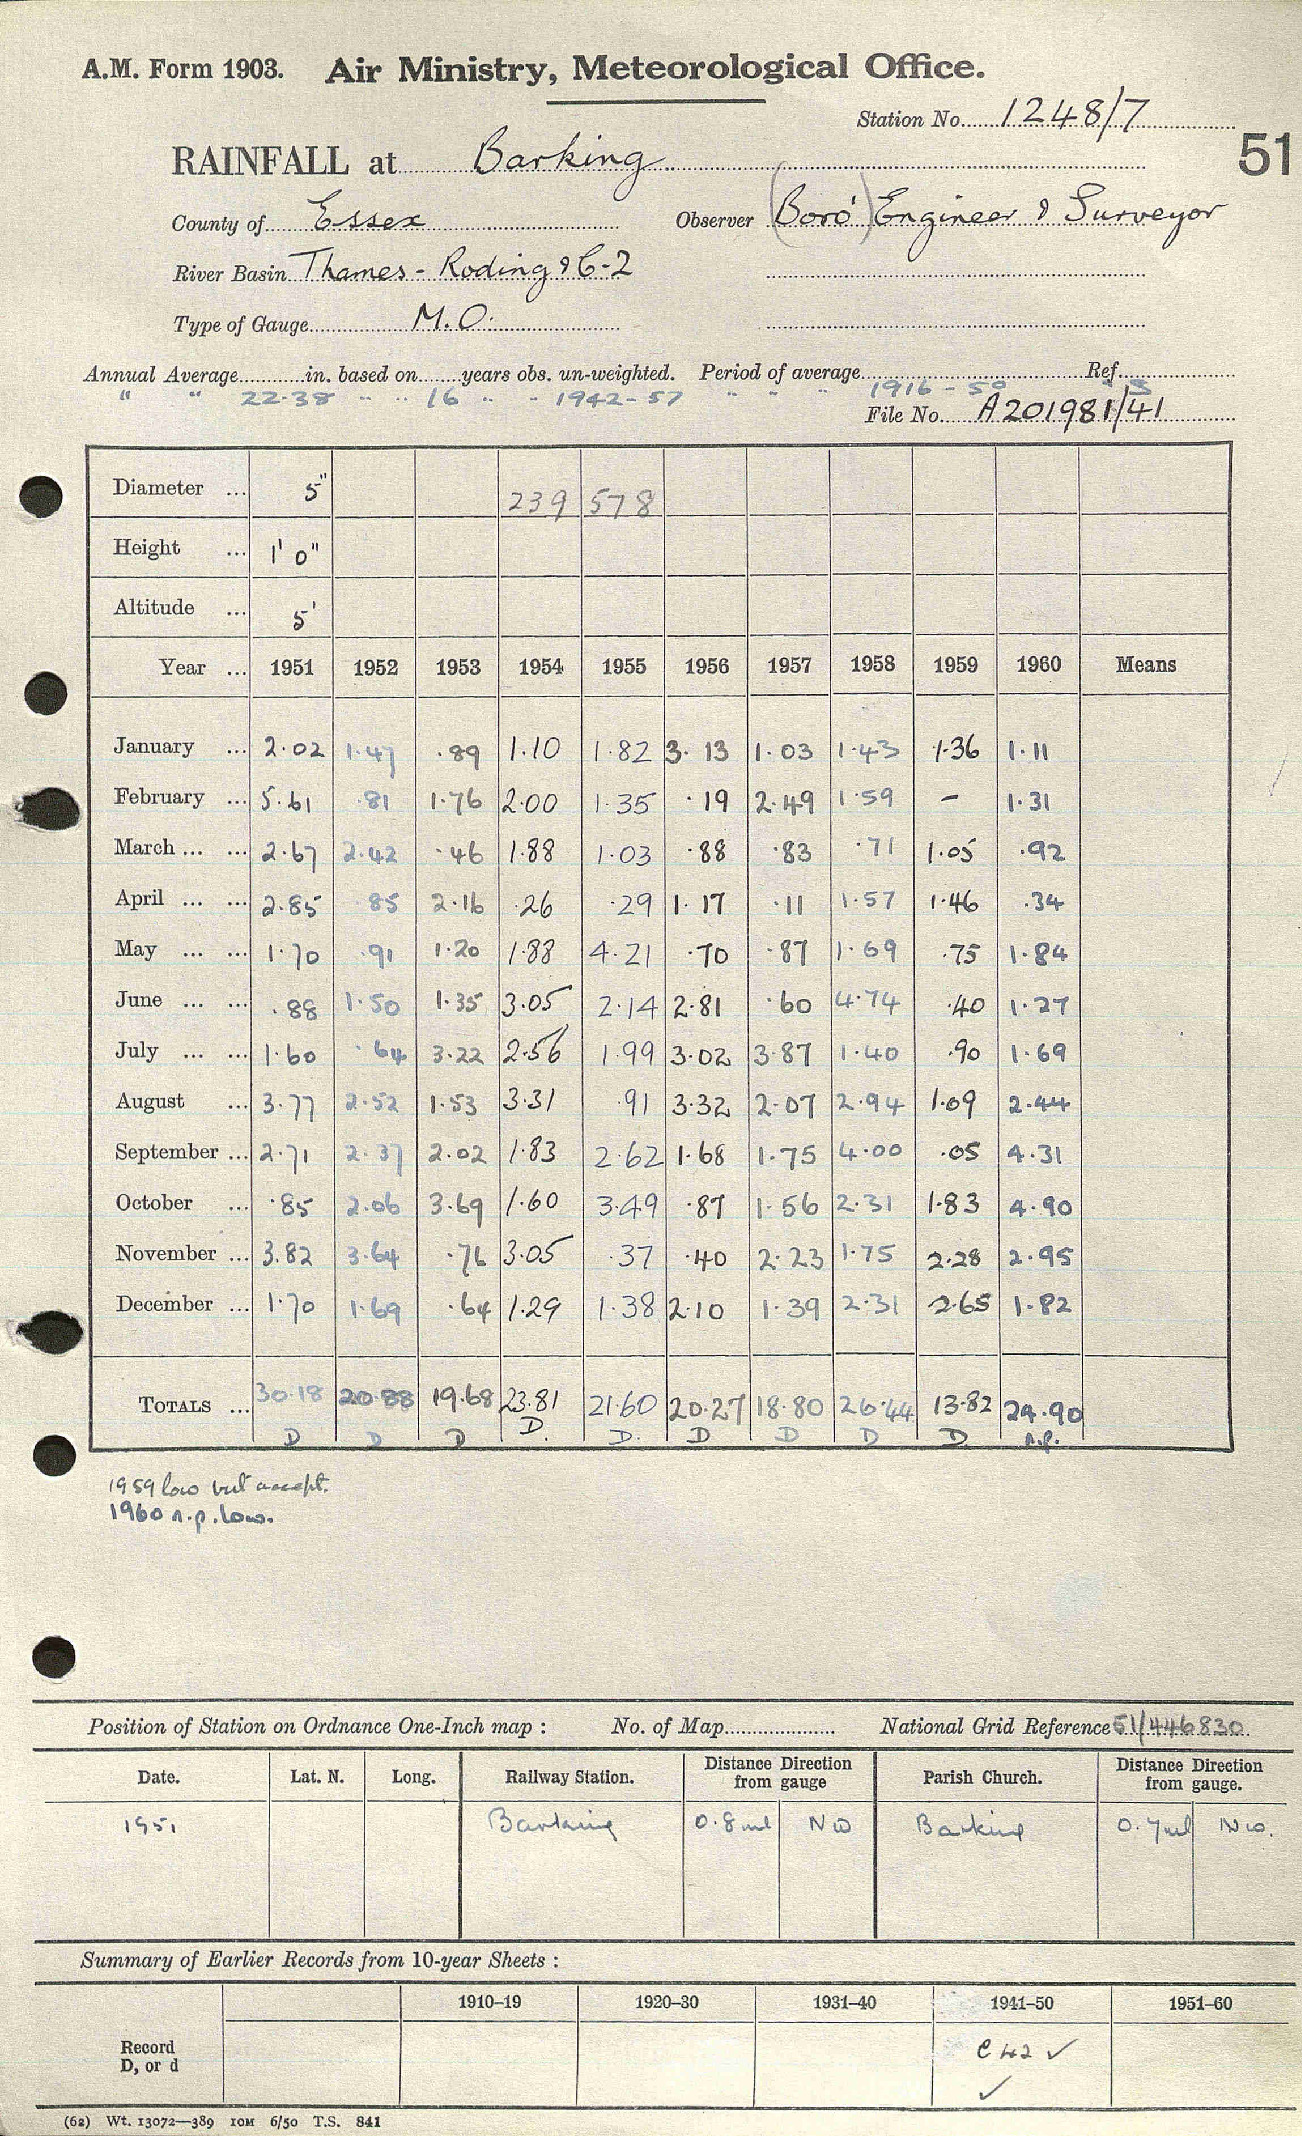 A.M. Form 1903. Air Ministry, Meteorological Office.
Station No. 1248/7
51
RAINFALL at Barking
County of Essex Observer (Boro') Engineer & Surveyor
River Basin Thames - Roding & C-2
Type of Gauge M.O.
Annual Average in. based on years obs. un-weighted. Period of average Ref.
" " 22.38 " " 16 " " 1942-57 " " " 1916-50 3
File No. A201981/41
Diameter ... 5" 239 578
Height ... 1' 0"
Altitude ... 5'
Year ... 1951 1952 1953 1954 1955 1956 1957 1958 1959 1960 Means
January ... 2.02 1.47 .89 1.10 1.82 3.13 1.03 1.43 1.36 1.11
February ... 5.61 .81 1.76 2.00 1.35 .19 2.49 1.59 - 1.31
March ... ... 2.67 2.42 .46 1.88 1.03 .88 .83 .71 1.05 .92
April ... ... 2.85 .85 2.16 .26 .29 1.17 .11 1.57 1.46 .34
May ... ... 1.70 .91 1.20 1.88 4.21 .70 .87 1.69 .75 1.84
June ... ... .88 1.50 1.35 3.05 2.14 2.81 .60 4.74 .40 1.27
July ... ... 1.60 .64 3.22 2.56 1.99 3.02 3.87 1.40 .90 1.69
August ... 3.77 2.52 1.53 3.31 .91 3.32 2.07 2.94 1.09 2.44
September ... 2.71 2.37 2.02 1.83 2.62 1.68 1.75 4.00 .05 4.31
October ... .85 2.06 3.69 1.60 3.49 .87 1.56 2.31 1.83 4.90
November ... 3.82 3.64 .76 3.05 .37 .40 2.23 1.75 2.28 2.95
December ... 1.70 1.69 .64 1.29 1.38 2.10 1.39 2.31 2.65 1.82
TOTALS ... 30.18 20.88 19.68 23.81 21.60 20.27 18.80 26.44 13.82 24.90
D D D D. D. D D D D n.p.
1959 low but accept.
1960 n.p. low.
Position of Station on Ordnance One-Inch map : No. of Map National Grid Reference 51/446830
Date. Lat. N. Long. Railway Station. Distance Direction from gauge Parish Church. Distance Direction from gauge.
1951 Barking 0.8ml NW Barking 0.7ml NW.
Summary of Earlier Records from 10-year Sheets :
1910–19 1920–30 1931–40 1941–50 1951–60
Record
D, or d
C 42 ✓
✓
(62) Wt. 13072—389 10M 6/50 T.S. 841